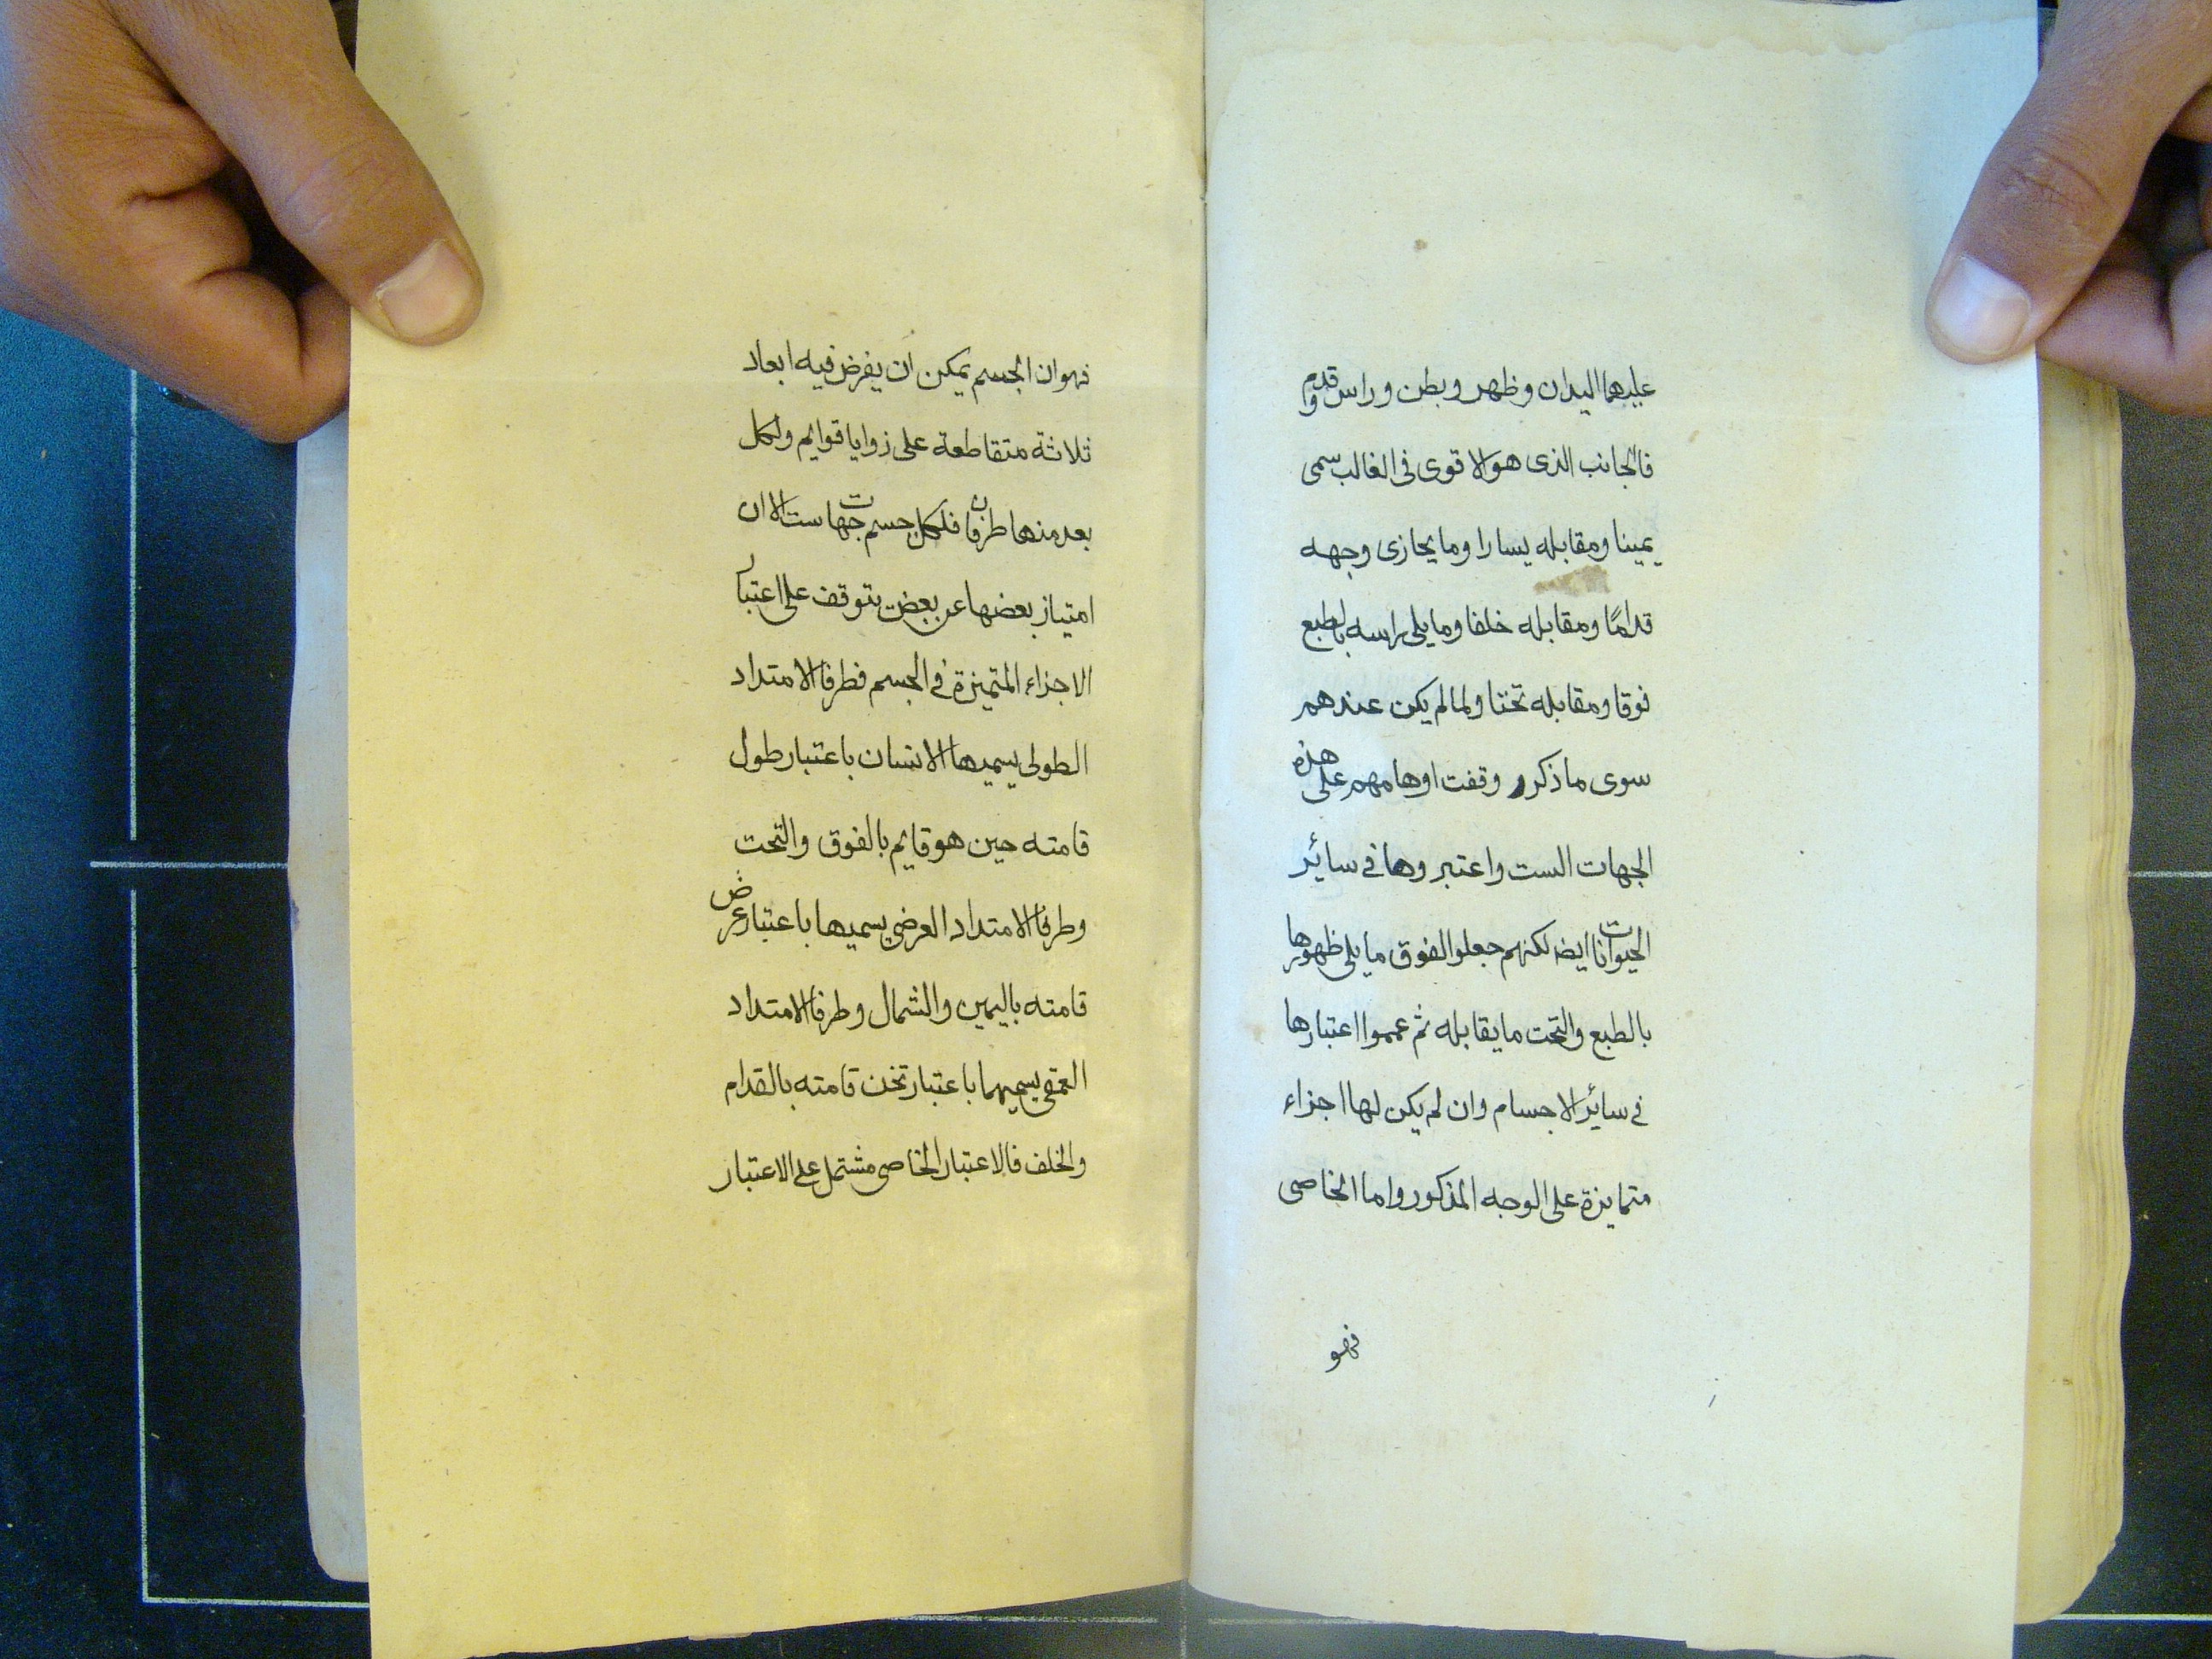 عليهما اليدان وظهر وبطن وراس وقدم
فالجانب الذى هو الاقوى فى الغالب سمى
يمينا ومقابله يسارا وما يحازى وجهه
قدامًا ومقابله خلفا وما يلى راسه بالطبع
فوقا ومقابله تحتا ولما لم يكن عندهم
سوى ما ذكر وقفت اوهامهم على هذه
الجهات الست واعتبروها فى سائر
الحيوانات ايضا لكنهم جعلوا الفوق ما يلى ظهورها
بالطبع والتحت ما يقابله ثم عمموا اعتبارها
فى سائر الاجسام وان لم يكن لها اجزاء
متمايزة على الوجه المذكور واما الخاصى
فهو
فهو ان الجسم يمكن ان يفرض فيه ابعاد
ثلاثة متقاطعة على زوايا قوايم ولكل
بعد منها طرفان فلكل جسم جهات ست الا ان
امتياز بعضها عن بعض يتوقف على اعتبار
الاجزاء المتميزة فى الجسم فطرفا الامتداد
الطولى يسميها الانسان باعتبار طول
قامته حين هو قايم بالفوق والتحت
وطرفا الامتداد العرضى يسميها باعتبار عرض
قامته باليمين والشمال وطرفا الامتداد
العمقى يسميهما باعتبار تخن قامته بالقدام
والخلف فالاعتبار الخاصى مشتمل على الاعتبار